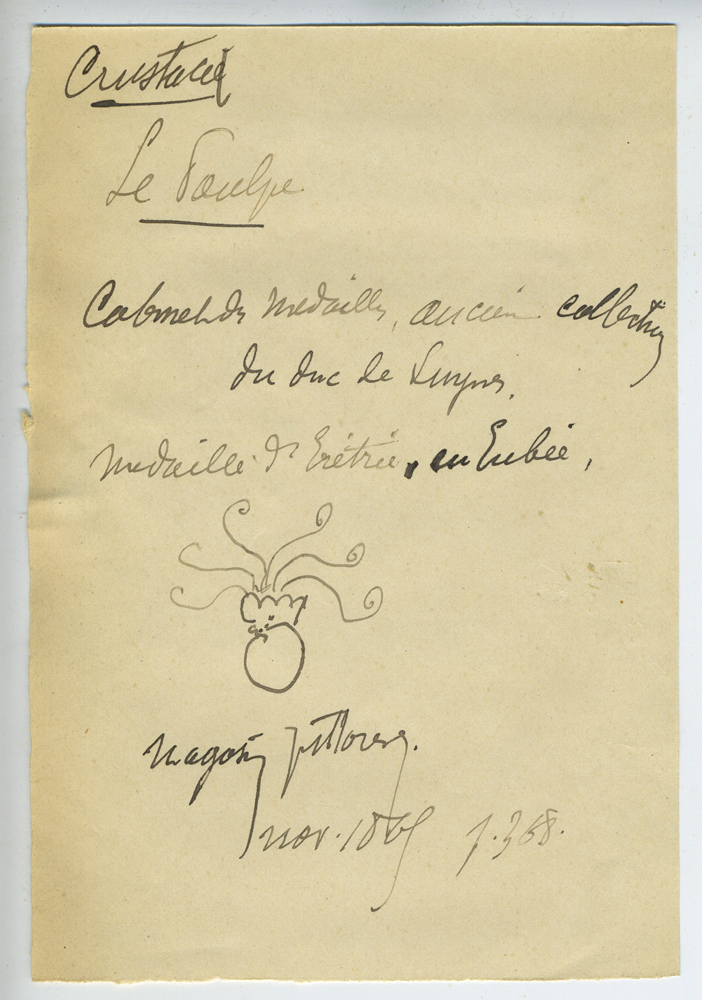 Crustacé
Le Poulpe
Cabinet des Medailles, ancien collection
du duc de Luynes.
Medaille d'Erétrie, en Eubée,
Magasin pittoresq.
nov. 1865 p. 368.